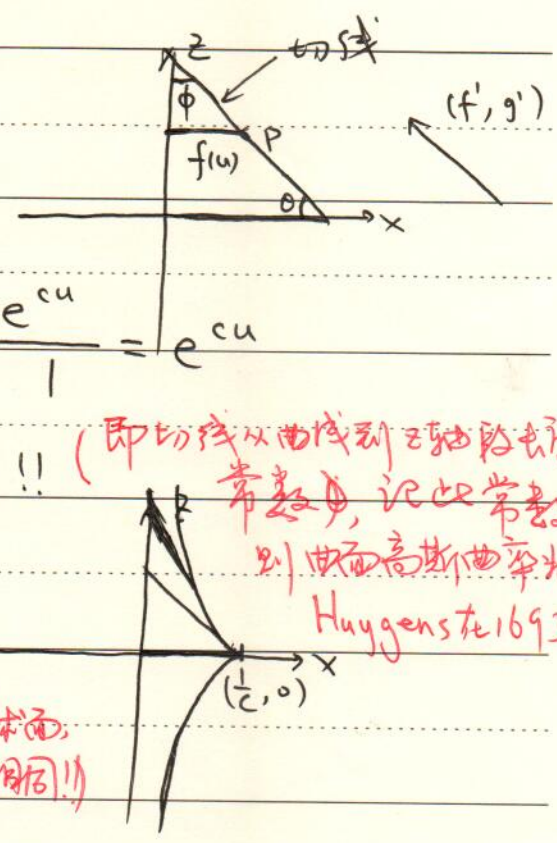 Z 切线
ϕ
P
f(u)
(f', g')
θ
x
e^{cu} / 1 = e^{cu}
!! (即切线从曲线到 z轴段长
常数), 记此常数
则曲面高斯曲率为
Huygens在169
z
x
(1/c, 0)
球面,
相同!!)